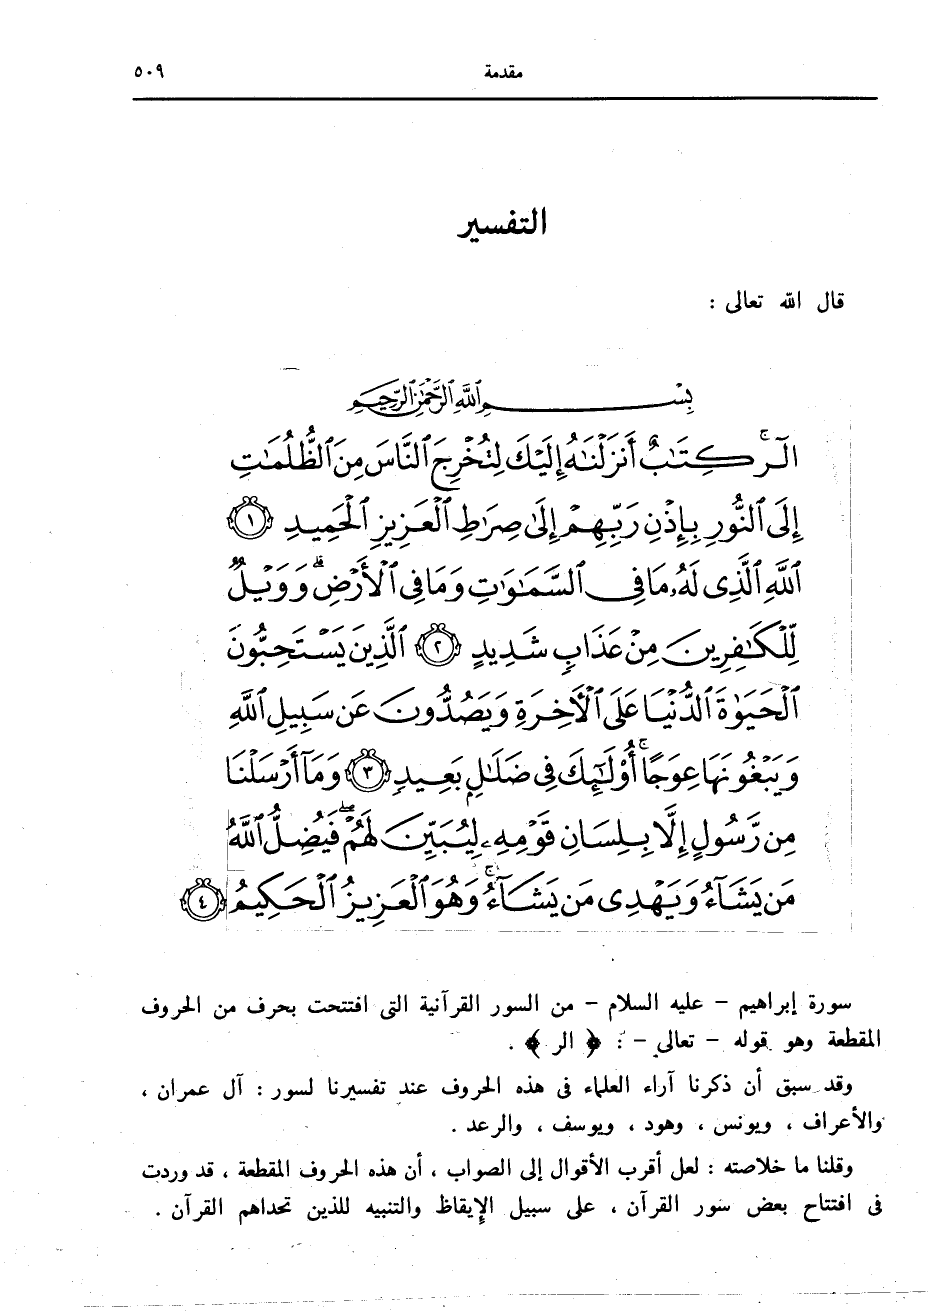 مقدمة ٥٠٩
التفسير
قال الله تعالى :
بِسْمِ اللَّهِ الرَّحْمَٰنِ الرَّحِيمِ
الٓرۚ كِتَٰبٌ أَنزَلْنَٰهُ إِلَيْكَ لِتُخْرِجَ ٱلنَّاسَ مِنَ ٱلظُّلُمَٰتِ
إِلَى ٱلنُّورِ بِإِذْنِ رَبِّهِمْ إِلَىٰ صِرَٰطِ ٱلْعَزِيزِ ٱلْحَمِيدِ ١
ٱللَّهِ ٱلَّذِى لَهُۥ مَا فِى ٱلسَّمَٰوَٰتِ وَمَا فِى ٱلْأَرْضِۗ وَوَيْلٌ
لِّلْكَٰفِرِينَ مِنْ عَذَابٍ شَدِيدٍ ٢ ٱلَّذِينَ يَسْتَحِبُّونَ
ٱلْحَيَوٰةَ ٱلدُّنْيَا عَلَى ٱلْأَخِرَةِ وَيَصُدُّونَ عَن سَبِيلِ ٱللَّهِ
وَيَبْغُونَهَا عِوَجًاۚ أُو۟لَٰٓئِكَ فِى ضَلَٰلٍ بَعِيدٍ ٣ وَمَآ أَرْسَلْنَا
مِن رَّسُولٍ إِلَّا بِلِسَانِ قَوْمِهِۦ لِيُبَيِّنَ لَهُمْۖ فَيُضِلُّ ٱللَّهُ
مَن يَشَآءُ وَيَهْدِى مَن يَشَآءُۚ وَهُوَ ٱلْعَزِيزُ ٱلْحَكِيمُ ٤
سورة إبراهيم - عليه السلام - من السور القرآنية التى افتتحت بحرف من الحروف
المقطعة وهو قوله - تعالى - : ﴿ الر ﴾ .
وقد سبق أن ذكرنا آراء العلماء فى هذه الحروف عند تفسيرنا لسور : آل عمران ،
والأعراف ، ويونس ، وهود ، ويوسف ، والرعد .
وقلنا ما خلاصته : لعل أقرب الأقوال إلى الصواب ، أن هذه الحروف المقطعة ، قد وردت
فى افتتاح بعض سور القرآن ، على سبيل الإيقاظ والتنبيه للذين تحداهم القرآن .